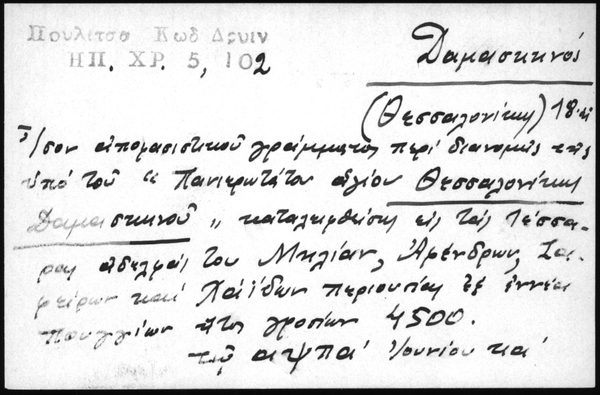 Πουλιτσα Κωδ Δρυιν
ΗΠ. ΧΡ. 5, 102
Δαμασκηνός
(Θεσσαλονίκης) 18
Ἴσον ἀποφασιστικοῦ γράμματος περί διανομῆς τῆς
ὑπό τοῦ " Πανιερωτάτου ἁγίου Θεσσαλονίκης
Δαμασκηνοῦ " καταλειφθείσης εἰς τάς τέσσα-
ρας ἀδελφάς του Μηλίαν,
καί περιουσίας ἐξ ἐννέα
πουγγίων ἤτοι γροσίων 4500.
τῷ αψπα' Ἰουνίου καί